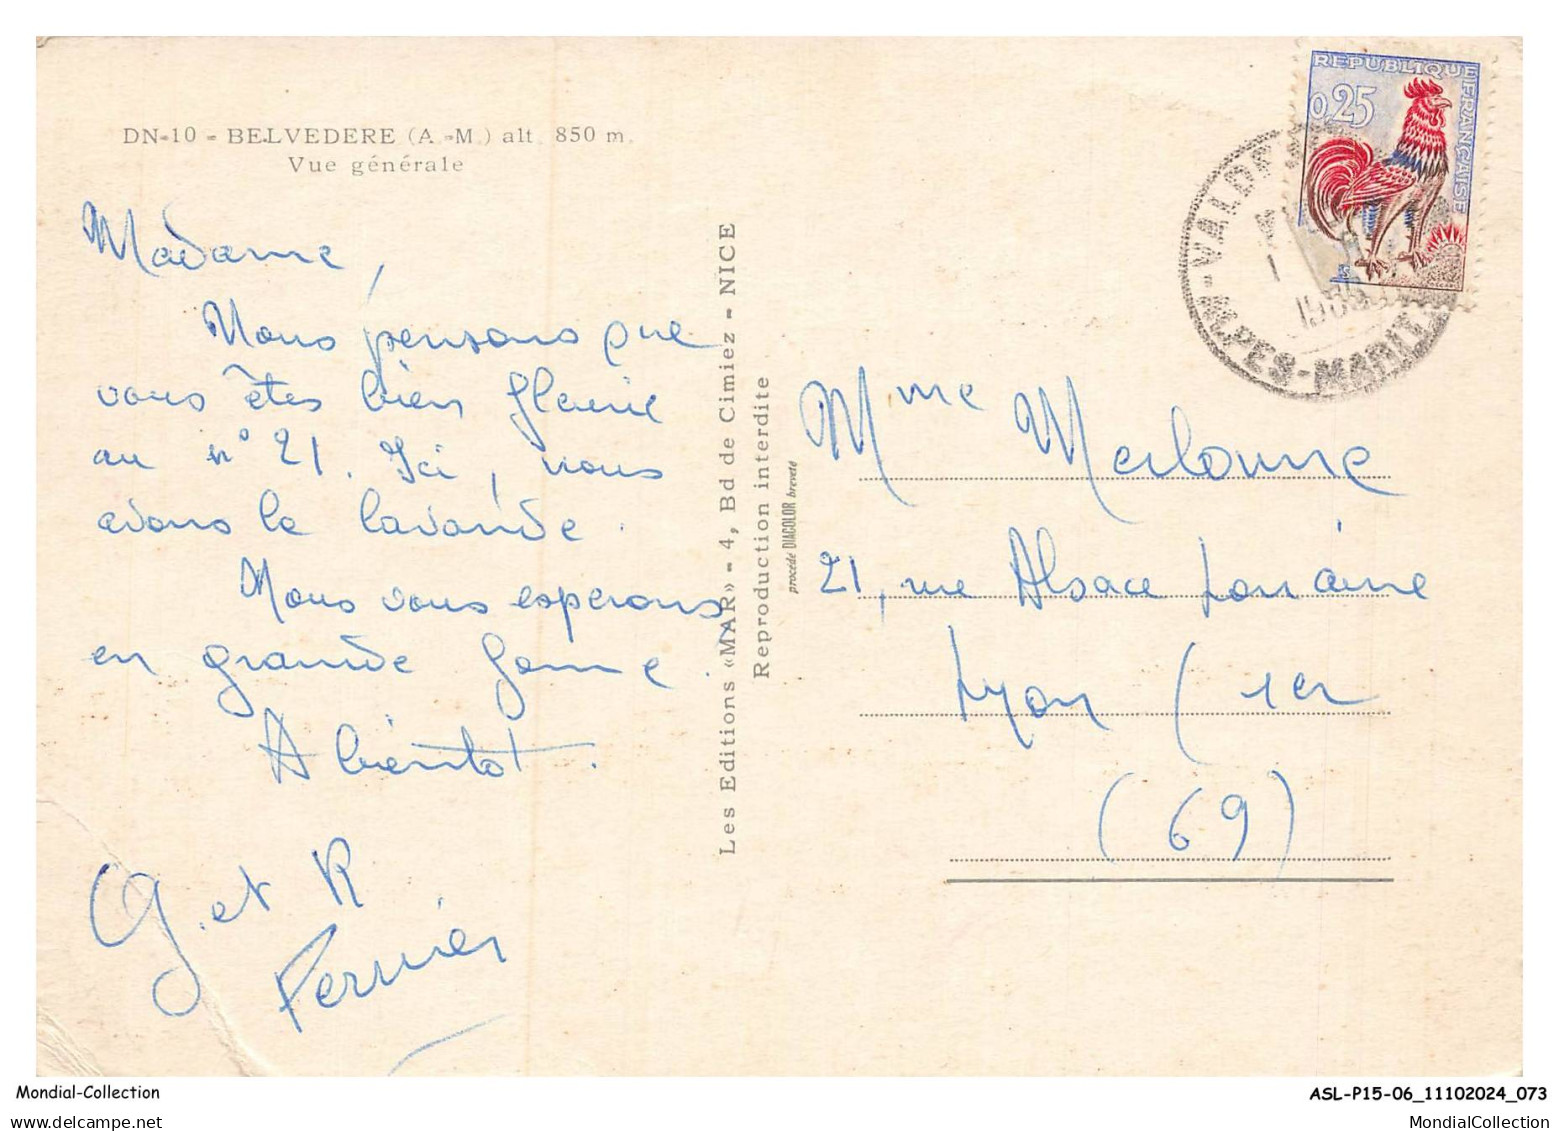 DN-10 - BELVEDERE (A.-M.) alt. 850 m.
Vue générale
Madame,
Nous pensons que
vous êtes bien fleurie
au n° 21. Ici, nous
avons la lavande.
Nous vous esperons
en grande forme.
A bientôt.
G. et R
Perrier
Les Editions «MAR» - 4, Bd de Cimiez - NICE
Reproduction interdite
procédé DIACOLOR breveté
REPUBLIQUE FRANÇAISE
0,25
VALDE
ALPES-MARIT
Mme Merlonne
21, rue Alsace Lorraine
Lyon (1er
(69)
Mondial-Collection
ASL-P15-06_11102024_073
MondialCollection